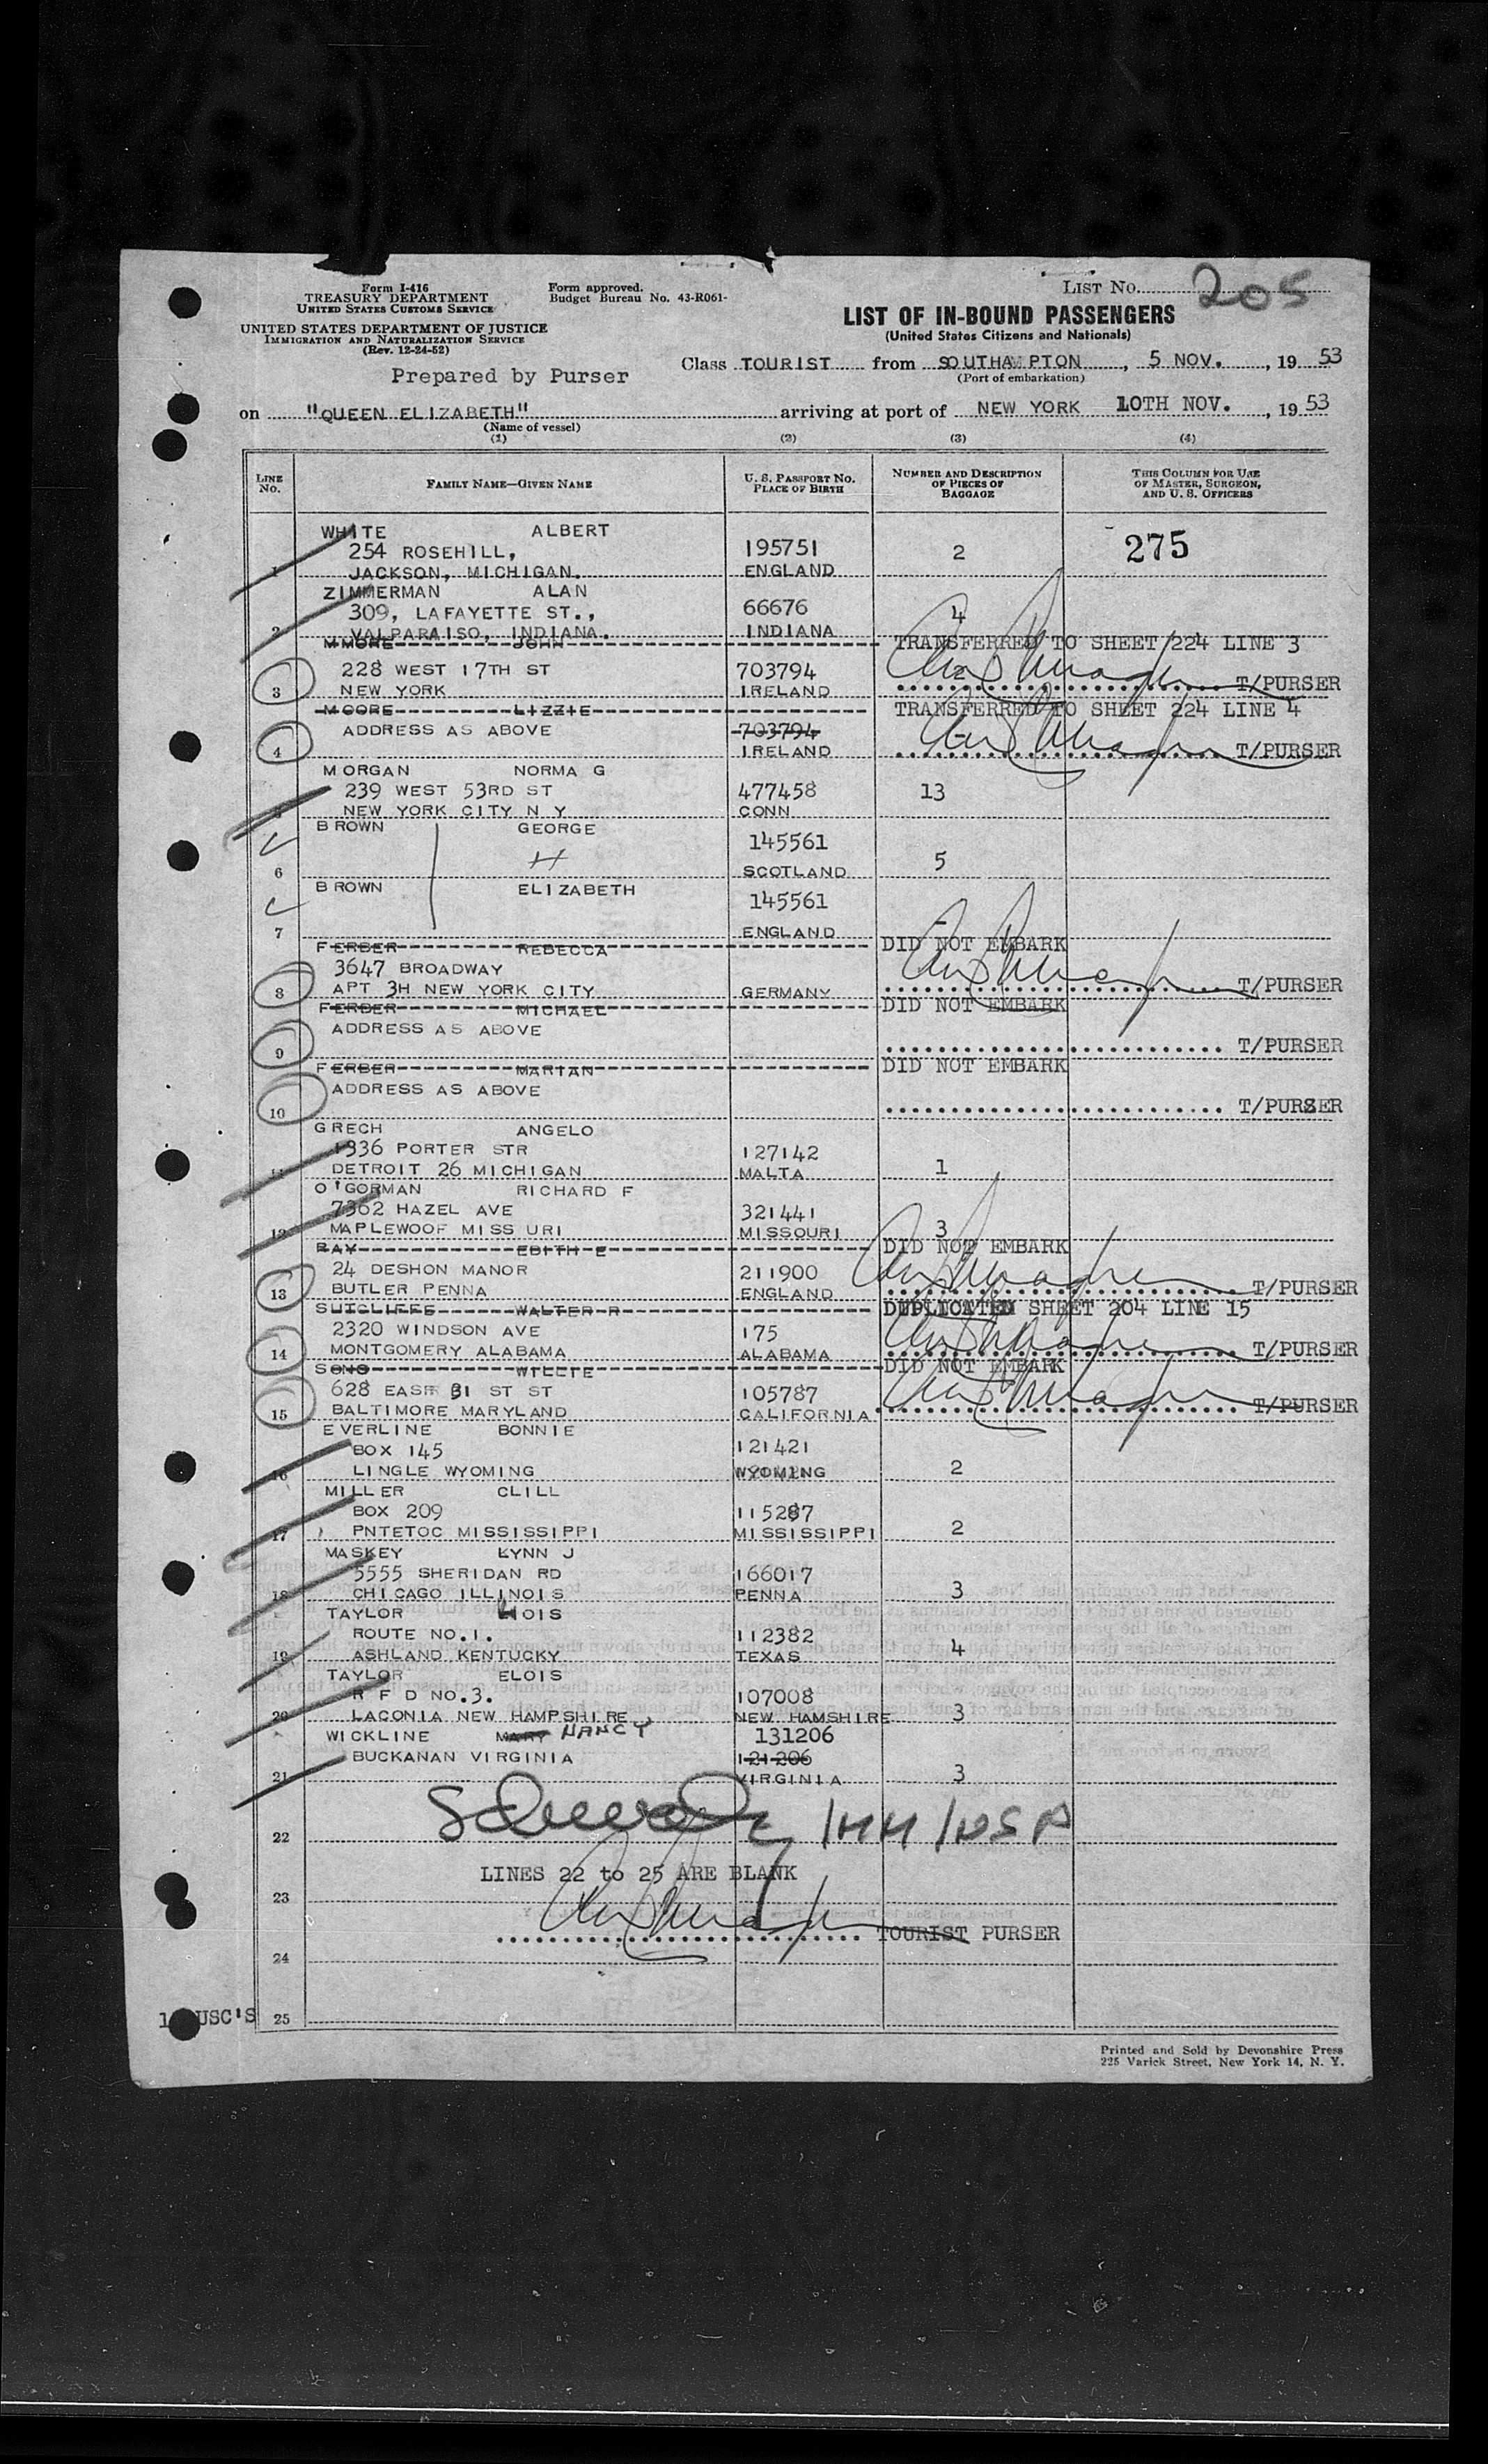 Form I-416
TREASURY DEPARTMENT
UNITED STATES CUSTOMS SERVICE
UNITED STATES DEPARTMENT OF JUSTICE
IMMIGRATION AND NATURALIZATION SERVICE
(Rev. 12-24-52)
Form approved.
Budget Bureau No. 43-R061-
LIST No. 205
LIST OF IN-BOUND PASSENGERS
(United States Citizens and Nationals)
Prepared by Purser
Class TOURIST from SOUTHAMPTON, 5 NOV., 1953
(Port of embarkation)
on "QUEEN ELIZABETH" arriving at port of NEW YORK 10TH NOV., 1953
(Name of vessel)
(1) (2) (3) (4)
LINE No. FAMILY NAME—GIVEN NAME U. S. PASSPORT No. PLACE OF BIRTH NUMBER AND DESCRIPTION OF PIECES OF BAGGAGE THIS COLUMN FOR USE OF MASTER, SURGEON, AND U. S. OFFICERS
WHITE ALBERT
254 ROSEHILL, 195751 2 275
1 JACKSON, MICHIGAN. ENGLAND
ZIMMERMAN ALAN
309, LAFAYETTE ST., 66676 4
2 VALPARAISO, INDIANA. INDIANA
MMORE JOHN TRANSFERRED TO SHEET 224 LINE 3
228 WEST 17TH ST 703794 2
3 NEW YORK IRELAND T/PURSER
MOORE LIZZIE TRANSFERRED TO SHEET 224 LINE 4
ADDRESS AS ABOVE 703794
4 IRELAND T/PURSER
MORGAN NORMA G
239 WEST 53RD ST 477458 13
NEW YORK CITY N Y CONN
BROWN GEORGE
H 145561
6 SCOTLAND 5
BROWN ELIZABETH
145561
7 ENGLAND
FERBER REBECCA DID NOT EMBARK
3647 BROADWAY
8 APT 3H NEW YORK CITY GERMANY T/PURSER
FERBER MICHAEL DID NOT EMBARK
ADDRESS AS ABOVE
9 T/PURSER
FERBER MARIAN DID NOT EMBARK
ADDRESS AS ABOVE
10 T/PURSER
GRECH ANGELO
1336 PORTER STR 127142
11 DETROIT 26 MICHIGAN MALTA 1
O'GORMAN RICHARD F
7362 HAZEL AVE 321441
12 MAPLEWOOF MISS URI MISSOURI 3
RAY EDITH E DID NOT EMBARK
24 DESHON MANOR 211900
13 BUTLER PENNA ENGLAND T/PURSER
SUTCLIFFE WALTER R DUPLICATED SHEET 204 LINE 15
2320 WINDSON AVE 175
14 MONTGOMERY ALABAMA ALABAMA T/PURSER
SONS WILLIE DID NOT EMBARK
628 EAST 31 ST ST 105787
15 BALTIMORE MARYLAND CALIFORNIA T/PURSER
EVERLINE BONNIE
BOX 145 121421
16 LINGLE WYOMING WYOMING 2
MILLER CLILL
BOX 209 115287
17 PNTETOC MISSISSIPPI MISSISSIPPI 2
MASKEY LYNN J
5555 SHERIDAN RD 166017
18 CHICAGO ILLINOIS PENNA 3
TAYLOR LOIS
ROUTE NO.1. 112382
19 ASHLAND KENTUCKY TEXAS 4
TAYLOR ELOIS
R F D NO.3. 107008
20 LACONIA NEW HAMPSHIRE NEW HAMSHIRE 3
WICKLINE MARY NANCY 131206
BUCKANAN VIRGINIA 121206
21 VIRGINIA 3
22
LINES 22 to 25 ARE BLANK
23
TOURIST PURSER
24
USC'S 25
Printed and Sold by Devonshire Press
225 Varick Street, New York 14, N. Y.